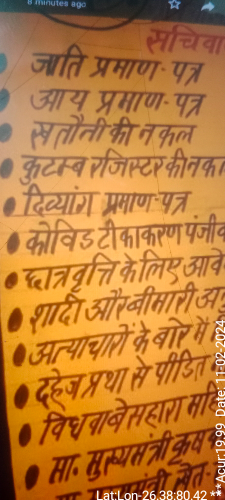 8 minutes ago
सचिवा
जाति प्रमाण-पत्र
आय प्रमाण-पत्र
खतौनी की नकल
कुटम्ब रजिस्टर की नका
दिव्यांग प्रमाण-पत्र
कोविड टीकाकरण पंजी
छात्रवृत्ति के लिए आवे
शादी और बीमारी अनु
अत्याचारों के बारे में
दहेज प्रथा से पीडित
विधवा बेसहारा महि
मा. मुख्यमंत्री कृष
Lat,Lon-26.38:80.42 ***Acur:19.99 Date: 11-02-2024